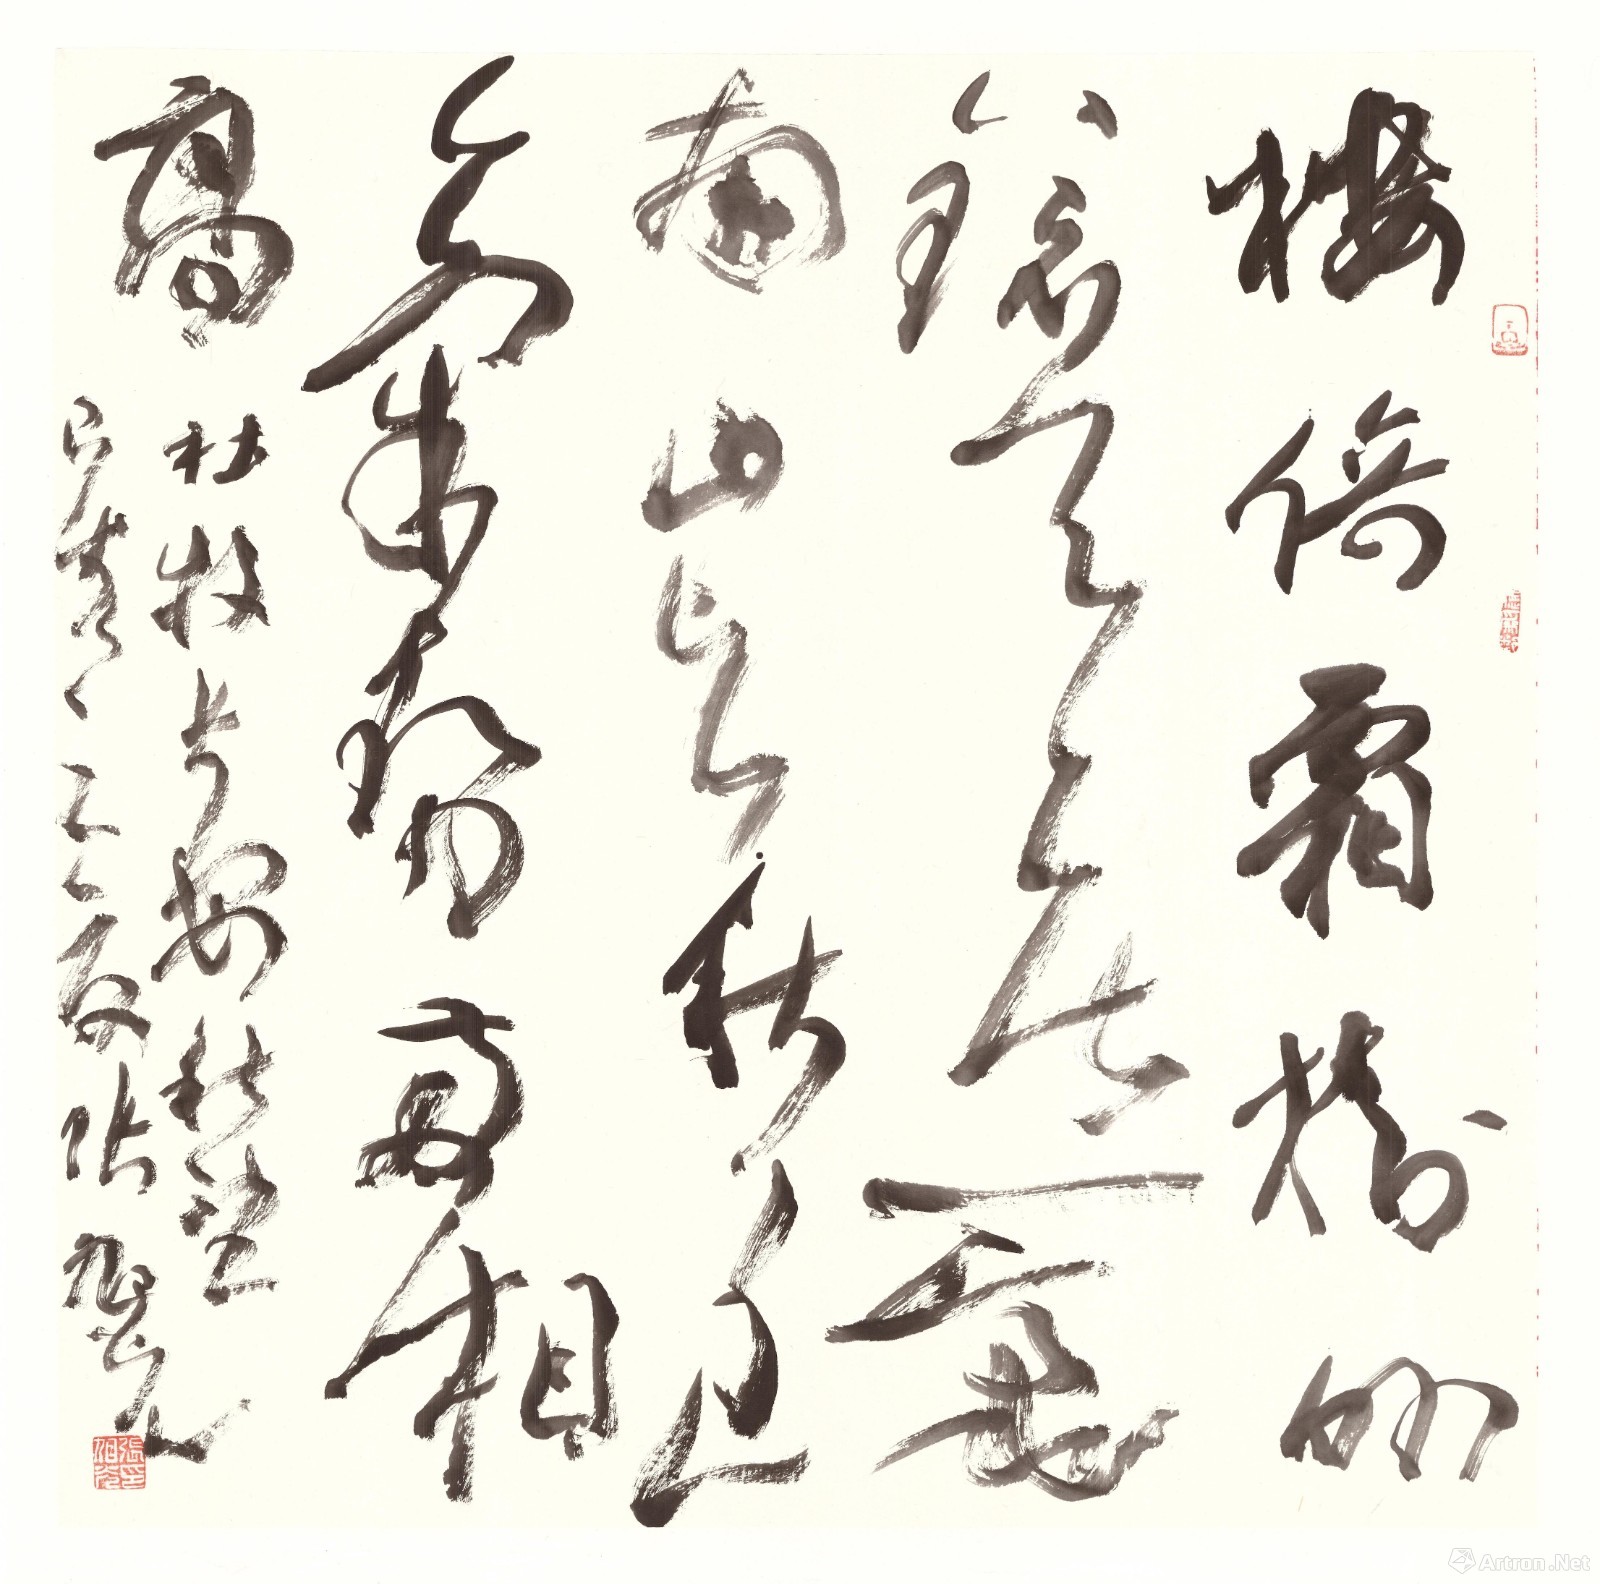 樓倚霜樹外
鏡天無一毫
南山與秋色
氣勢兩相
高
杜牧長安秋望
夏張旭光
Artron.Net